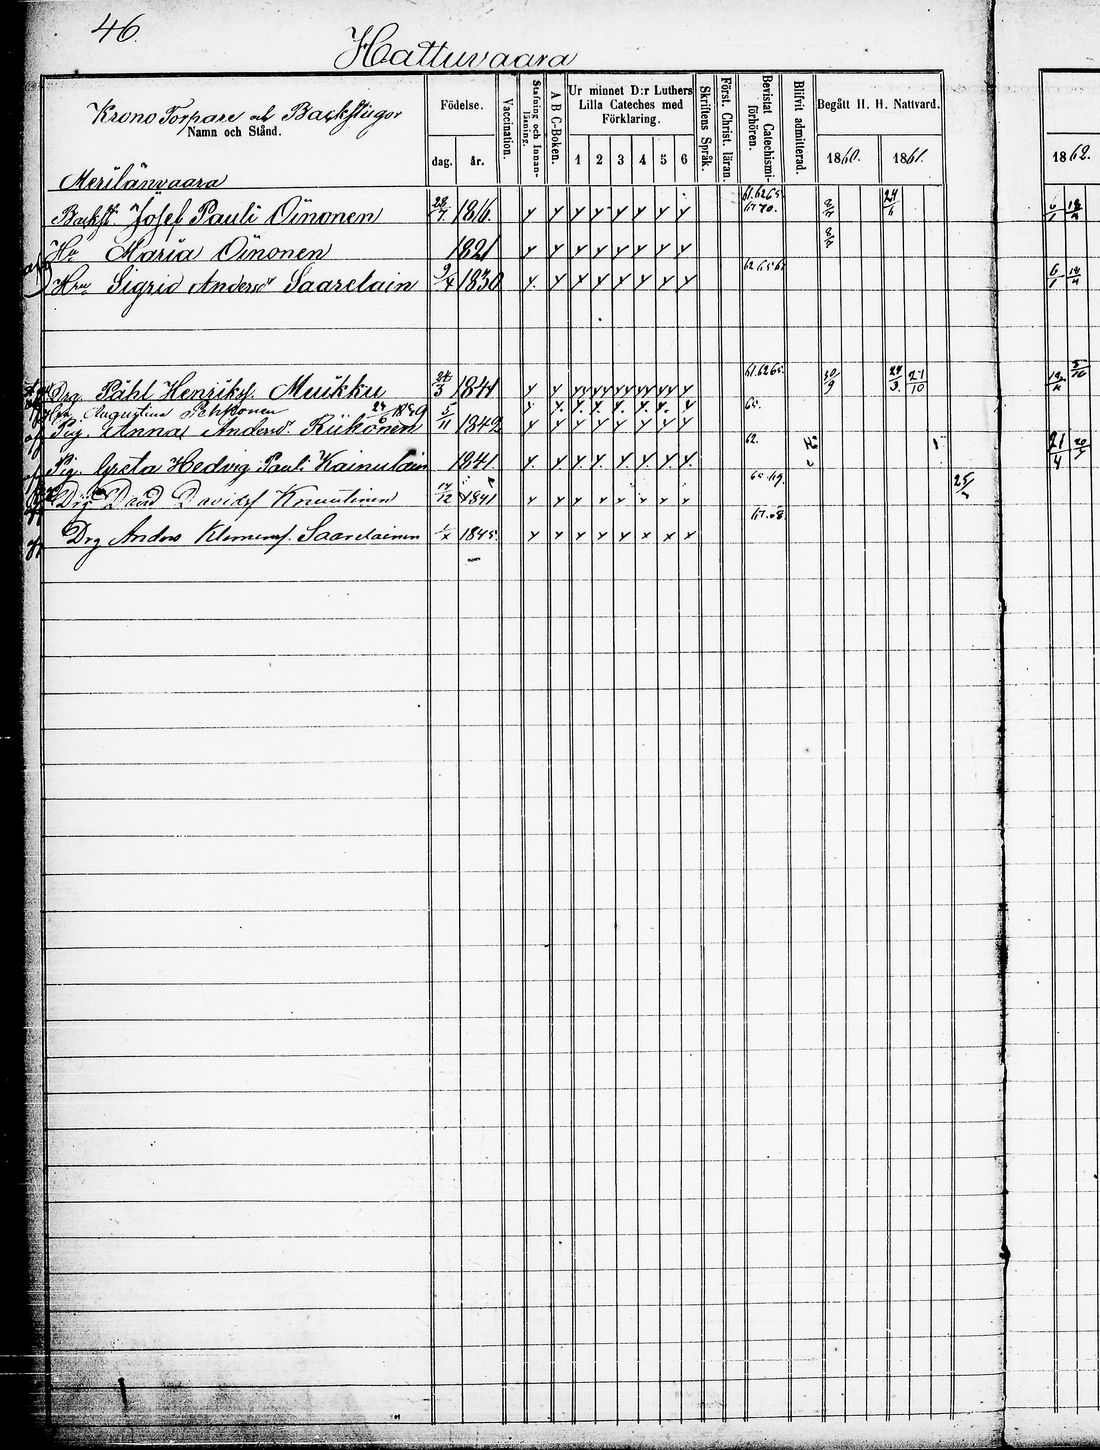 46.
Hattuvaara
Krono Torpare och Backstugor
Namn och Stånd.
Födelse.
dag. år.
Vaccination.
Stafning och Innanläsning.
A B C-Boken.
Ur minnet D:r Luthers Lilla Cateches med Förklaring.
1 2 3 4 5 6
Skriftens Språk.
Först. Christ. läran.
Bevistat Catechismi-förhören.
Blifvit admitterad.
Begått H. H. Nattvard.
1860. 1861. 1862.
Merilänvaara
Backst. Josef Pauli Oinonen 28/7 1816. y y y y y y y y 24/6
Hu Maria Oinonen 1821 y y y y y y y y
Hru Sigrid Andersdr Saarelain 9/4 1830 y y y y y y y y
Drg. Påhl Henrikss. Muikku 24/3 1841 y y y y y y y y 61.62.65. 30/9 24/3 27/10
Augustina Pehkonen 24/6 1859 y y y y y y y y 65.
Pig. Anna Andersdr. Riikonen 5/11 1842 y y y y y y y y
Pig. Greta Hedvig Pauli Kainulain 1841 y y y y y y y y 62. 21/4
Drg David Davidss Knuutinen 14/12 1841 y y y y y y y y
Drg Anders Klemenss. Saarelainen 1845. y y y y y y x x